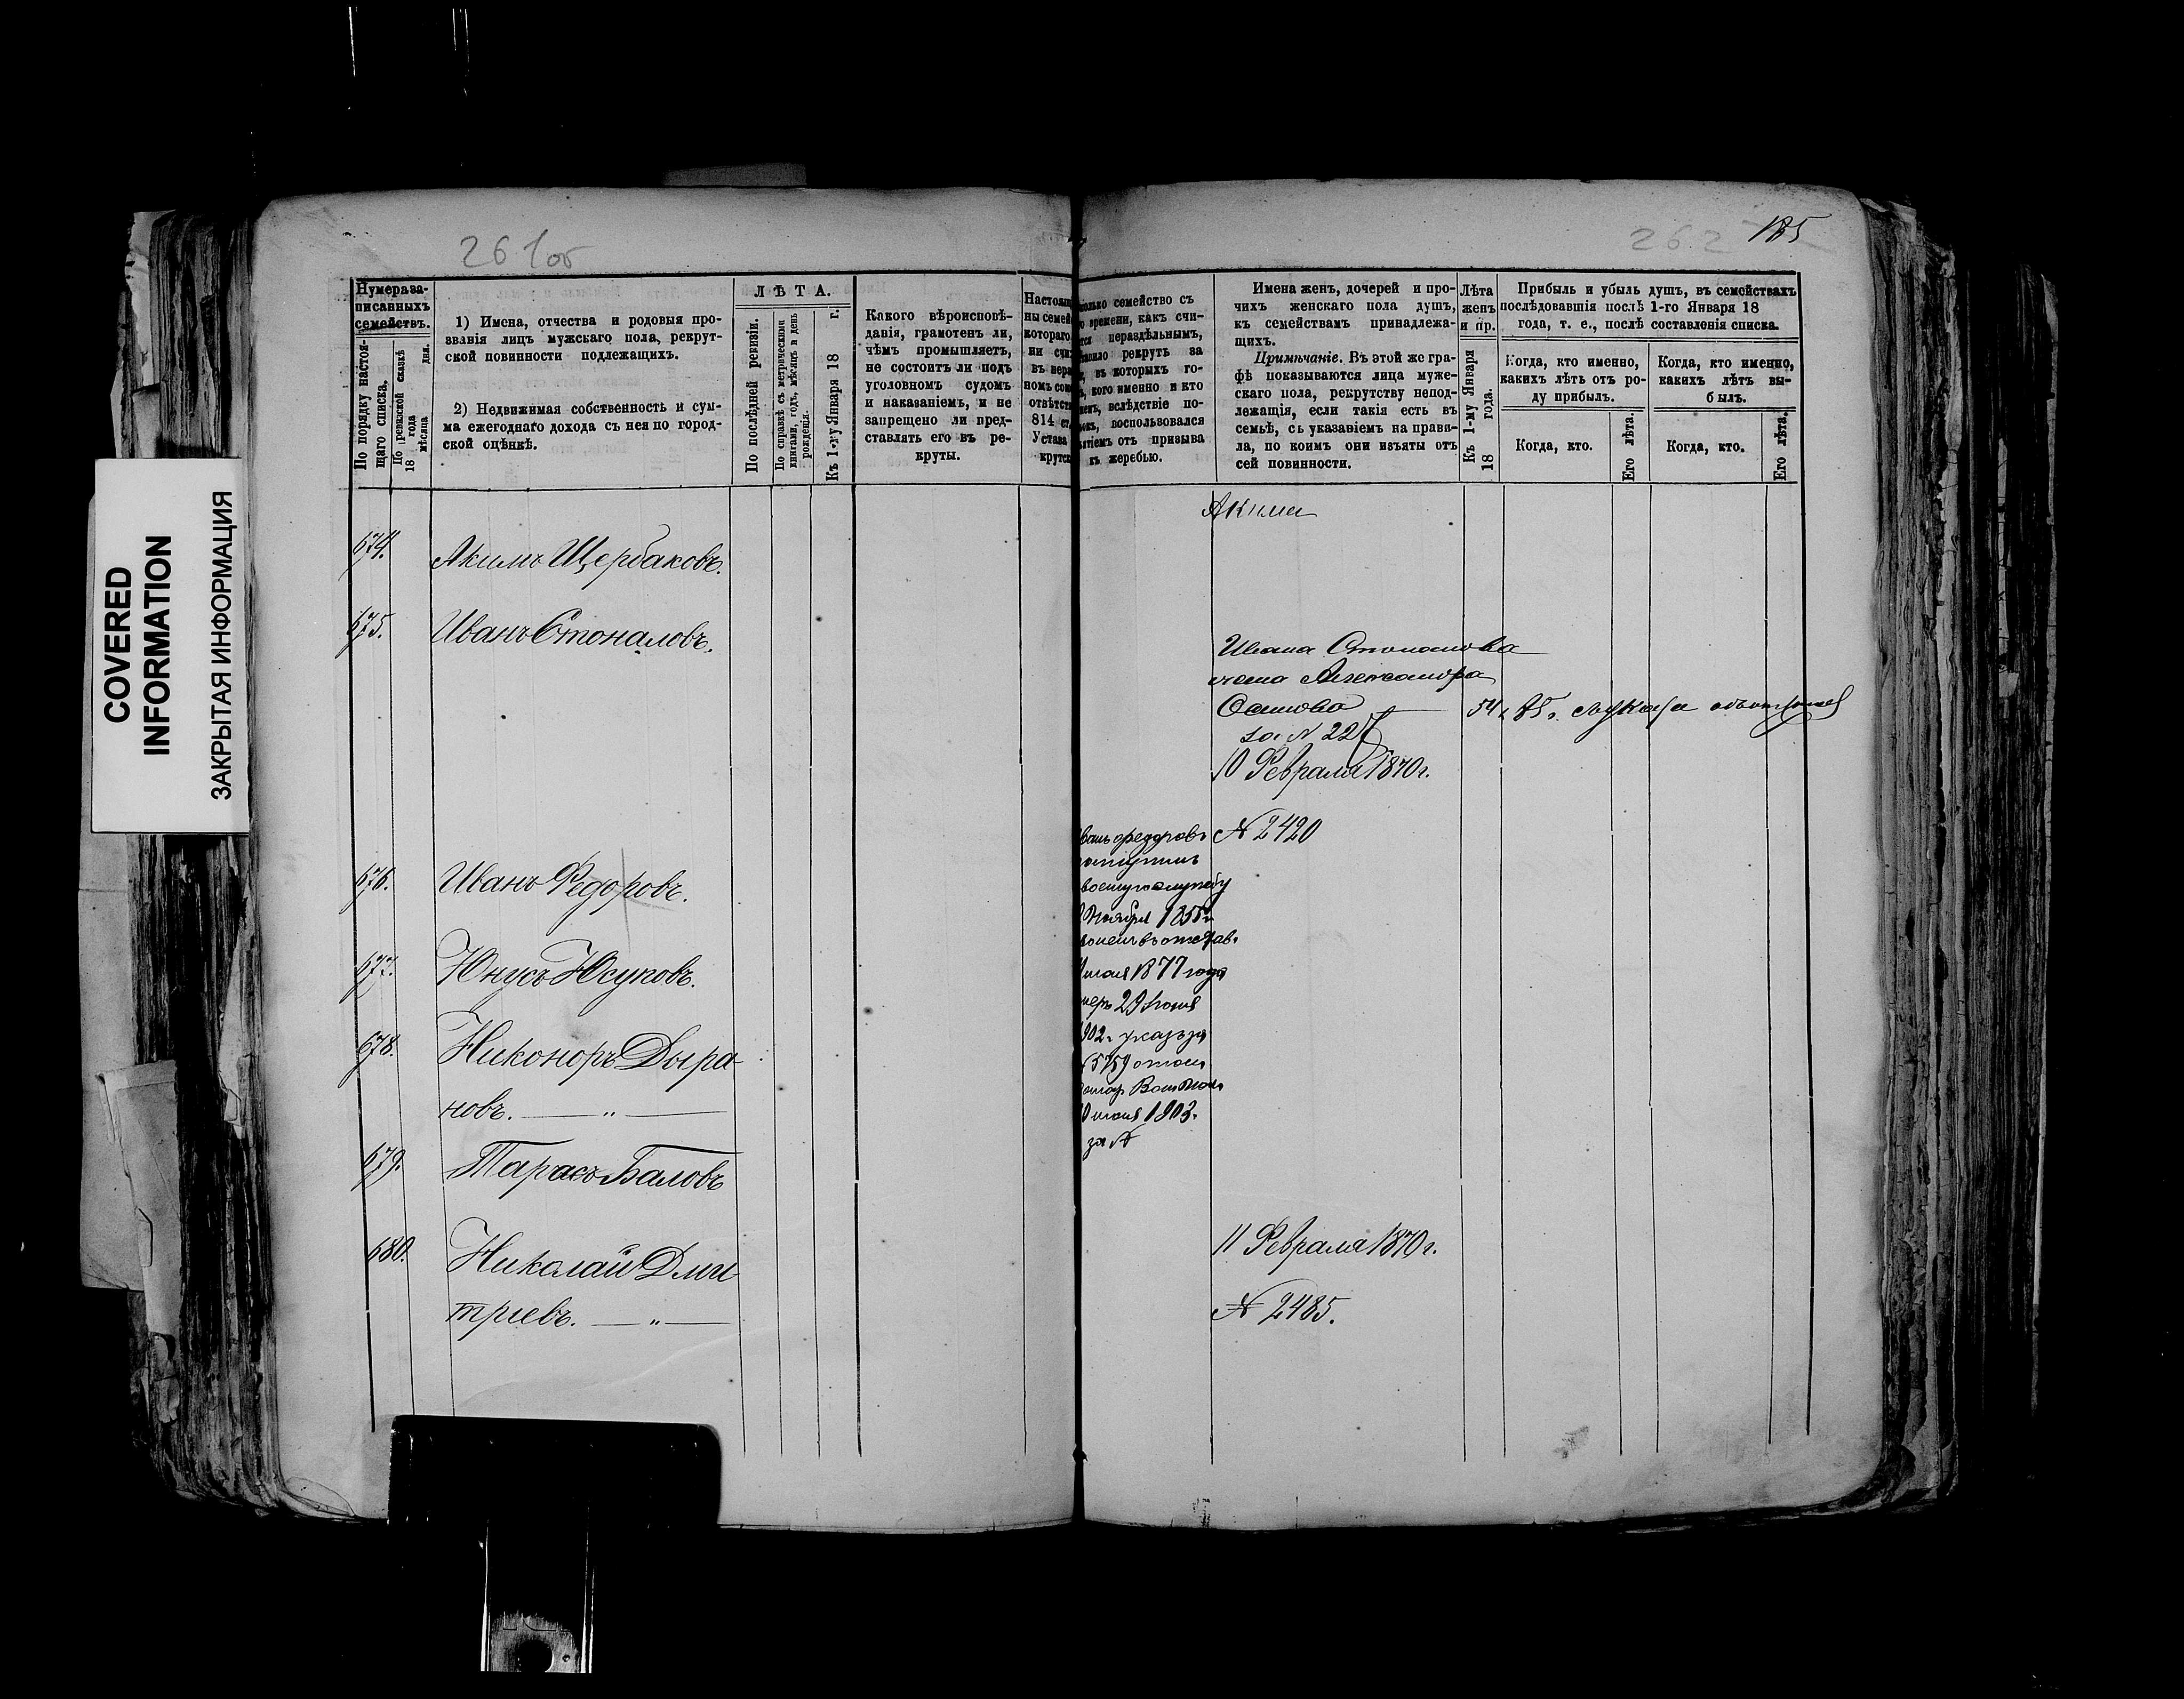 261об
262 185
COVERED
INFORMATION
ЗАКРЫТАЯ ИНФОРМАЦИЯ
Нумера за-
писанныхъ
семействъ.
По порядку настоя-
щаго списка.
По ревизской сказкѣ
18 года
мѣсяца дня.
1) Имена, отчества и родовыя про-
званія лицъ мужскаго пола, рекрут-
ской повинности подлежащихъ.
2) Недвижимая собственность и сум-
ма ежегоднаго дохода съ нея по город-
ской оцѣнкѣ.
ЛѢТА.
По послѣдней ревизіи.
По справкѣ съ метрическими
книгами, годъ, мѣсяцъ и день
рожденія.
Къ 1-му Января 18 г.
Какого вѣроисповѣ-
данія, грамотенъ ли,
чѣмъ промышляетъ,
не состоитъ ли подъ
уголовномъ судомъ
и наказаніемъ, и не
запрещено ли пред-
ставлять его въ ре-
круты.
Настоящ
ны семей
котораго
ни счи
въ нера
номъ сою
отвѣтст
814 ст.
Устава
крутск
олько семейство съ
о времени, какъ счи-
тся нераздѣльнымъ,
авило рекрутъ за
въ которыхъ го-
кого именно и кто
менъ, вслѣдствіе по-
воспользовался
ятіемъ отъ призыва
къ жеребью.
Имена женъ, дочерей и про-
чихъ женскаго пола душъ,
къ семействамъ принадлежа-
щихъ.
Примѣчаніе. Въ этой же гра-
фѣ показываются лица муже-
скаго пола, рекрутству непод-
лежащія, если такія есть въ
семьѣ, съ указаніемъ на прави-
ла, по коимъ они изъяты отъ
сей повинности.
Лѣта
женъ
и пр.
Къ 1-му Января
18 года.
Прибыль и убыль душъ, въ семействахъ
послѣдовавшія послѣ 1-го Января 18
года, т. е., послѣ составленія списка.
Когда, кто именно,
какихъ лѣтъ отъ ро-
ду прибылъ.
Когда, кто именно,
какихъ лѣтъ вы-
былъ.
Когда, кто.
Его лѣта.
Когда, кто.
Его лѣта.
Акима
674. Акимъ Щербаковъ.
675. Иванъ Стоналовъ.
Ивана
жена Александра
Осипова 54
за № 225
10 Февраля 1870 г.
№ 2420
676. Иванъ Федоровъ.
677. Юнусъ Юсуповъ.
678. Никоноръ Дыра-
новъ. — „ —
679. Тарасъ Баловъ
680. Николай Дми
тріевъ. — „ —
ванъ федоровъ
поступилъ
военную службу
Ноября 1855 г.
1877 года
меръ 29 Іюня
902 г. указъ за
5759
1903 г.
за №
11 Февраля 1870 г.
№ 2485.